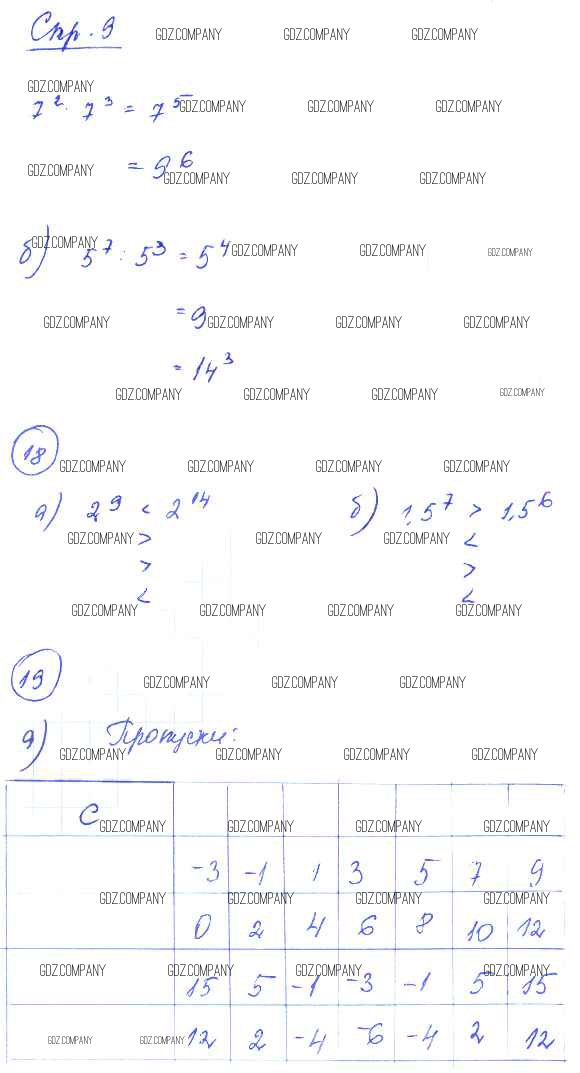 Стр. 9 GDZ.COMPANY GDZ.COMPANY GDZ.COMPANY
GDZ.COMPANY
7² · 7³ = 7⁵ GDZ.COMPANY GDZ.COMPANY GDZ.COMPANY
GDZ.COMPANY = 9⁶ GDZ.COMPANY GDZ.COMPANY GDZ.COMPANY
GDZ.COMPANY
б) 5⁷ : 5³ = 5⁴ GDZ.COMPANY GDZ.COMPANY GDZ.COMPANY
GDZ.COMPANY = 9 GDZ.COMPANY GDZ.COMPANY GDZ.COMPANY
= 14³
GDZ.COMPANY GDZ.COMPANY GDZ.COMPANY GDZ.COMPANY
18 GDZ.COMPANY GDZ.COMPANY GDZ.COMPANY GDZ.COMPANY
а) 2⁹ < 2¹⁴ б) 1,5⁷ > 1,5⁶
GDZ.COMPANY > GDZ.COMPANY GDZ.COMPANY <
> >
< <
GDZ.COMPANY GDZ.COMPANY GDZ.COMPANY GDZ.COMPANY
19 GDZ.COMPANY GDZ.COMPANY GDZ.COMPANY
а) Пропуски:
GDZ.COMPANY GDZ.COMPANY GDZ.COMPANY GDZ.COMPANY
С GDZ.COMPANY GDZ.COMPANY GDZ.COMPANY GDZ.COMPANY
-3 -1 1 3 5 7 9
GDZ.COMPANY GDZ.COMPANY GDZ.COMPANY GDZ.COMPANY
0 2 4 6 8 10 12
GDZ.COMPANY GDZ.COMPANY GDZ.COMPANY GDZ.COMPANY
15 5 -1 -3 -1 5 15
GDZ.COMPANY GDZ.COMPANY 12 2 -4 -6 -4 2 12